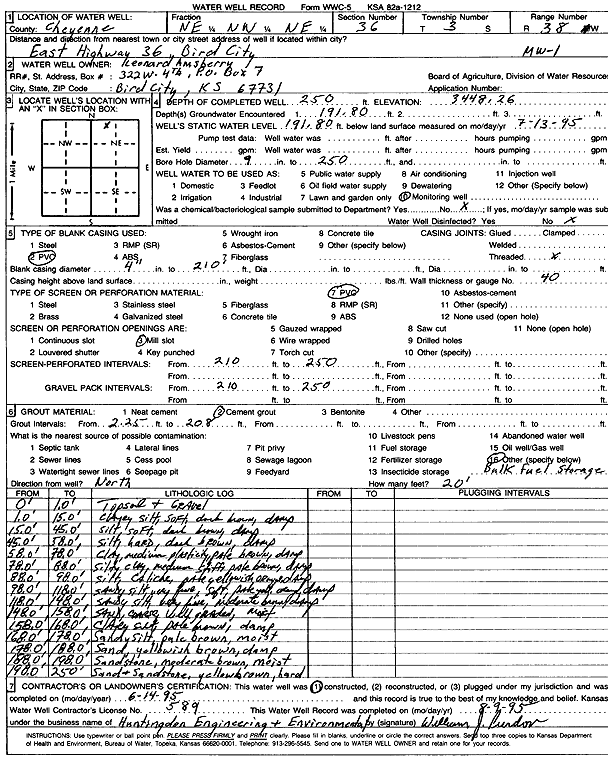 WATER WELL RECORD Form WWC-5 KSA 82a-1212
1 LOCATION OF WATER WELL: Fraction Section Number Township Number Range Number
County: Cheyenne NE ¼ NW ¼ NE ¼ 36 T 3 S R 38 W
Distance and direction from nearest town or city street address of well if located within city?
East Highway 36, Bird City MW-1
2 WATER WELL OWNER: Leonard Amsberry
RR#, St. Address, Box # : 322 W. 4th, P.O. Box 7 Board of Agriculture, Division of Water Resources
City, State, ZIP Code : Bird City, KS 67731 Application Number:
3 LOCATE WELL'S LOCATION WITH AN "X" IN SECTION BOX:
N
X
NW NE
W E
SW SE
S
1 Mile
4 DEPTH OF COMPLETED WELL 250 ft. ELEVATION: 3448.26
Depth(s) Groundwater Encountered 1 191.80 ft. 2 ft. 3 ft.
WELL'S STATIC WATER LEVEL 191.80 ft. below land surface measured on mo/day/yr 7-13-95
Pump test data: Well water was ft. after hours pumping gpm
Est. Yield gpm: Well water was ft. after hours pumping gpm
Bore Hole Diameter 9 in. to 250 ft., and in. to ft.
WELL WATER TO BE USED AS: 5 Public water supply 8 Air conditioning 11 Injection well
1 Domestic 3 Feedlot 6 Oil field water supply 9 Dewatering 12 Other (Specify below)
2 Irrigation 4 Industrial 7 Lawn and garden only 10 Monitoring well
Was a chemical/bacteriological sample submitted to Department? Yes No X ; If yes, mo/day/yr sample was submitted
Water Well Disinfected? Yes No
5 TYPE OF BLANK CASING USED: 5 Wrought iron 8 Concrete tile CASING JOINTS: Glued Clamped
1 Steel 3 RMP (SR) 6 Asbestos-Cement 9 Other (specify below) Welded
2 PVC 4 ABS 7 Fiberglass Threaded X
Blank casing diameter 4" in. to 210' ft., Dia in. to ft., Dia in. to ft.
Casing height above land surface in., weight lbs./ft. Wall thickness or gauge No. 40
TYPE OF SCREEN OR PERFORATION MATERIAL: 7 PVC 10 Asbestos-cement
1 Steel 3 Stainless steel 5 Fiberglass 8 RMP (SR) 11 Other (specify)
2 Brass 4 Galvanized steel 6 Concrete tile 9 ABS 12 None used (open hole)
SCREEN OR PERFORATION OPENINGS ARE: 5 Gauzed wrapped 8 Saw cut 11 None (open hole)
1 Continuous slot 3 Mill slot 6 Wire wrapped 9 Drilled holes
2 Louvered shutter 4 Key punched 7 Torch cut 10 Other (specify)
SCREEN-PERFORATED INTERVALS: From 210 ft. to 250 ft., From ft. to ft.
From ft. to ft., From ft. to ft.
GRAVEL PACK INTERVALS: From 210 ft. to 250 ft., From ft. to ft.
From ft. to ft., From ft. to ft.
6 GROUT MATERIAL: 1 Neat cement 2 Cement grout 3 Bentonite 4 Other
Grout Intervals: From 2.25 ft. to 208 ft., From ft. to ft., From ft. to ft.
What is the nearest source of possible contamination: 10 Livestock pens 14 Abandoned water well
1 Septic tank 4 Lateral lines 7 Pit privy 11 Fuel storage 15 Oil well/Gas well
2 Sewer lines 5 Cess pool 8 Sewage lagoon 12 Fertilizer storage 16 Other (specify below)
3 Watertight sewer lines 6 Seepage pit 9 Feedyard 13 Insecticide storage Bulk Fuel Storage
Direction from well? North How many feet? 20'
FROM TO LITHOLOGIC LOG FROM TO PLUGGING INTERVALS
0' 1.0' Topsoil + GRAVEL
1.0' 15.0' Clayey silt, soft, dark brown, damp
15.0' 45.0' silt, soft, dark brown, damp
45.0' 58.0' silt, hard, dark brown, damp
58.0' 78.0' Clay, medium plasticity, pale brown, damp
78.0' 88.0' Silty clay, medium stiff, pale brown, damp
88.0' 98.0' silt, caliche, pale yellowish orange, damp
98.0' 118.0' sandy silt, very fine, soft, pale yell. damp
118.0' 148.0' sandy silt, very fine, moderate brown, damp
148.0' 158.0' Sand, coarse, well graded, moist
158.0' 168.0' Clayey silt, pale brown, damp
168.0' 178.0' Sandy silt, pale brown, moist
178.0' 188.0' Sand, yellowish brown, damp
188.0' 198.0' Sandstone, moderate brown, moist
198.0' 250' Sand + Sandstone, yellow brown, hard
7 CONTRACTOR'S OR LANDOWNER'S CERTIFICATION: This water well was (1) constructed, (2) reconstructed, or (3) plugged under my jurisdiction and was
completed on (mo/day/year) 6-14-95 and this record is true to the best of my knowledge and belief. Kansas
Water Well Contractor's License No. 589 This Water Well Record was completed on (mo/day/yr) 8-9-95
under the business name of Huntingdon Engineering + Environmental by (signature) William J. Purdon
INSTRUCTIONS: Use typewriter or ball point pen. PLEASE PRESS FIRMLY and PRINT clearly. Please fill in blanks, underline or circle the correct answers. Send top three copies to Kansas Department
of Health and Environment, Bureau of Water, Topeka, Kansas 66620-0001. Telephone: 913-296-5545. Send one to WATER WELL OWNER and retain one for your records.